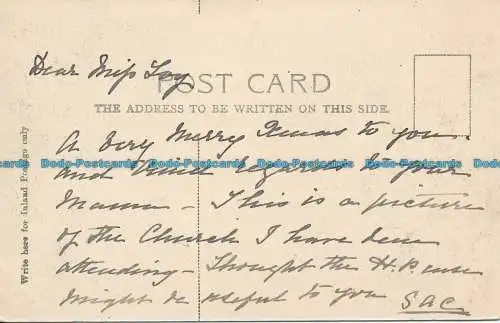 Dear Miss Loy
POST CARD
THE ADDRESS TO BE WRITTEN ON THIS SIDE.
Write here for Inland Postage only
A very Merry Xmas to you
Dodo-Postcards Dodo-Postcards Dodo-Postcards Dodo-Postcards Dodo-Postcards
and kind regards to your
Mamma – This is a picture
of the Church I have been
attending – Thought the H.P.
might be useful to you
S.A.C.